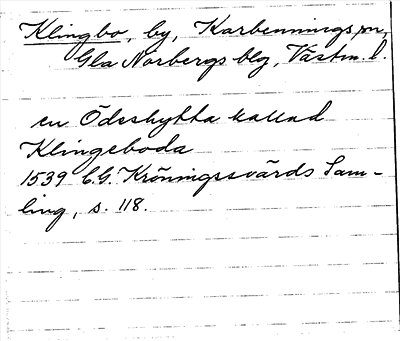 Klingbo, by, Karbennings sn,
Gla Norbergs blg, Västm. l.
en Ödeshytta kallad
Klingeboda
1539 C.G. Kröningssvärds Sam-
ling, s. 118.